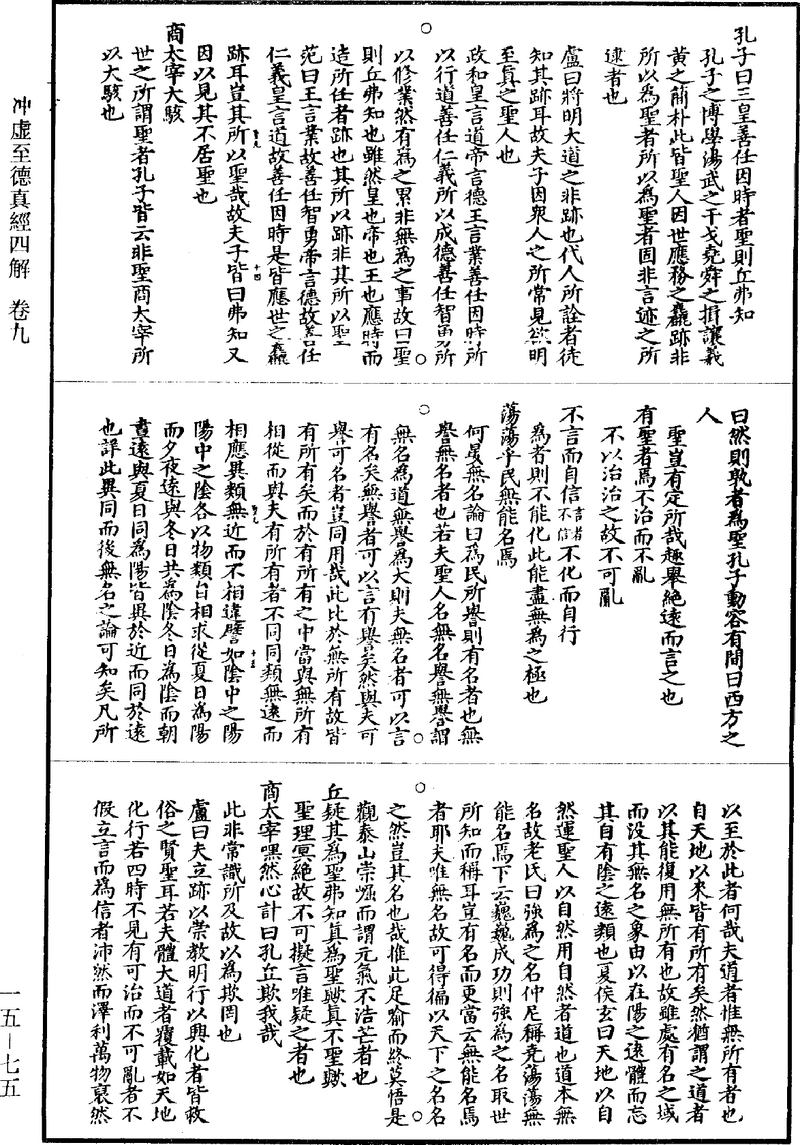 冲虛至德真經四解　卷九
一五—七五
孔子曰三皇善任因時者聖則丘弗知
孔子之博學湯武之干戈堯舜之揖讓羲
黃之簡朴此皆聖人因世應務之麤跡非
所以為聖者所以為聖者固非言迹之所
逮者也
盧曰將明大道之非跡也代人所詮者徒
知其跡耳故夫子因眾人之所常見欲明
至真之聖人也
政和皇言道帝言德王言業善任因時所
以行道善任仁義所以成德善任智勇所
以修業然有為之累非無為之事故曰聖
則丘弗知也雖然皇也帝也王也應時而
造所任者跡也其所以跡非其所以聖
范曰王言業故善任智勇帝言德故善任
仁義皇言道故善任因時是皆應世之麤
跡耳豈其所以聖哉故夫子皆曰弗知又
因以見其不居聖也
十四
商太宰大駭
世之所謂聖者孔子皆云非聖商太宰所
以大駭也
曰然則孰者為聖孔子動容有間曰西方之
人
聖豈有定所哉趣舉絕遠而言之也
有聖者焉不治而不亂
不以治治之故不可亂
不言而自信言者不信不化而自行
為者則不能化此能盡無為之極也
蕩蕩乎民無能名焉
何晏無名論曰為民所譽則有名者也無
譽無名者也若夫聖人名無名譽無譽謂
無名為道無譽為大則夫無名者可以言
有名矣無譽者可以言有譽矣然與夫可
譽可名者豈同用哉此比於無所有故皆
有所有矣而於有所有之中當與無所有
相從而與夫有所有者不同同類無遠而
相應異類無近而不相違譬如陰中之陽
十五
陽中之陰各以物類自相求從夏日為陽
而夕夜遠與冬日共為陰冬日為陰而朝
晝遠與夏日同為陽皆異於近而同於遠
也詳此異同而後無名之論可知矣凡所
以至於此者何哉夫道者惟無所有者也
自天地以來皆有所有矣然猶謂之道者
以其能復用無所有也故雖處有名之域
而沒其無名之象由以在陽之遠體而忘
其自有陰之遠類也夏侯玄曰天地以自
然運聖人以自然用自然者道也道本無
名故老氏曰強為之名仲尼稱堯蕩蕩無
能名焉下云巍巍成功則強為之名取世
所知而稱耳豈有名而更當云無能名焉
者耶夫唯無名故可得徧以天下之名名
之然豈其名也哉惟此足喻而終莫悟是
觀泰山崇崛而謂元氣不浩芒者也
丘疑其為聖弗知真為聖歟真不聖歟
聖理冥絕故不可擬言唯疑之者也
商太宰嘿然心計曰孔丘欺我哉
此非常識所及故以為欺罔也
盧曰夫立跡以崇教明行以興化者皆救
俗之賢聖耳若夫體大道者覆載如天地
化行若四時不見有可治而不可亂者不
假立言而為信者沛然而澤利萬物裒然